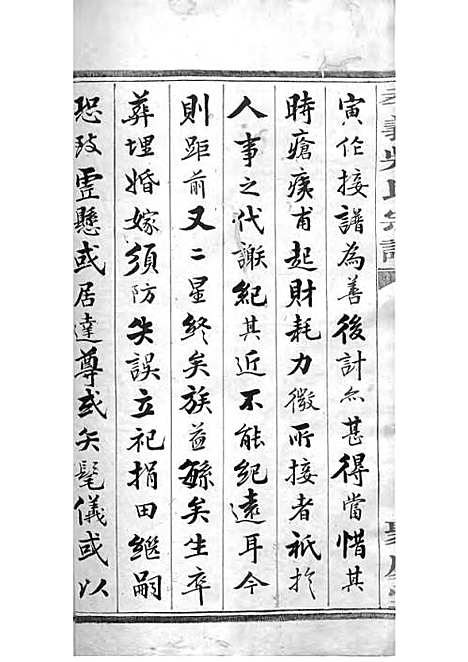 寅作接譜為善後計亦甚得當惜其
時瘡痍甫起財耗力微所接者祇於
人事之代謝紀其近不能紀遠耳今
則距前又二星終矣族益繇矣生卒
葬埋婚嫁須防失誤立祀捐田繼嗣
恐致虛懸或居達尊或矢髦儀或以